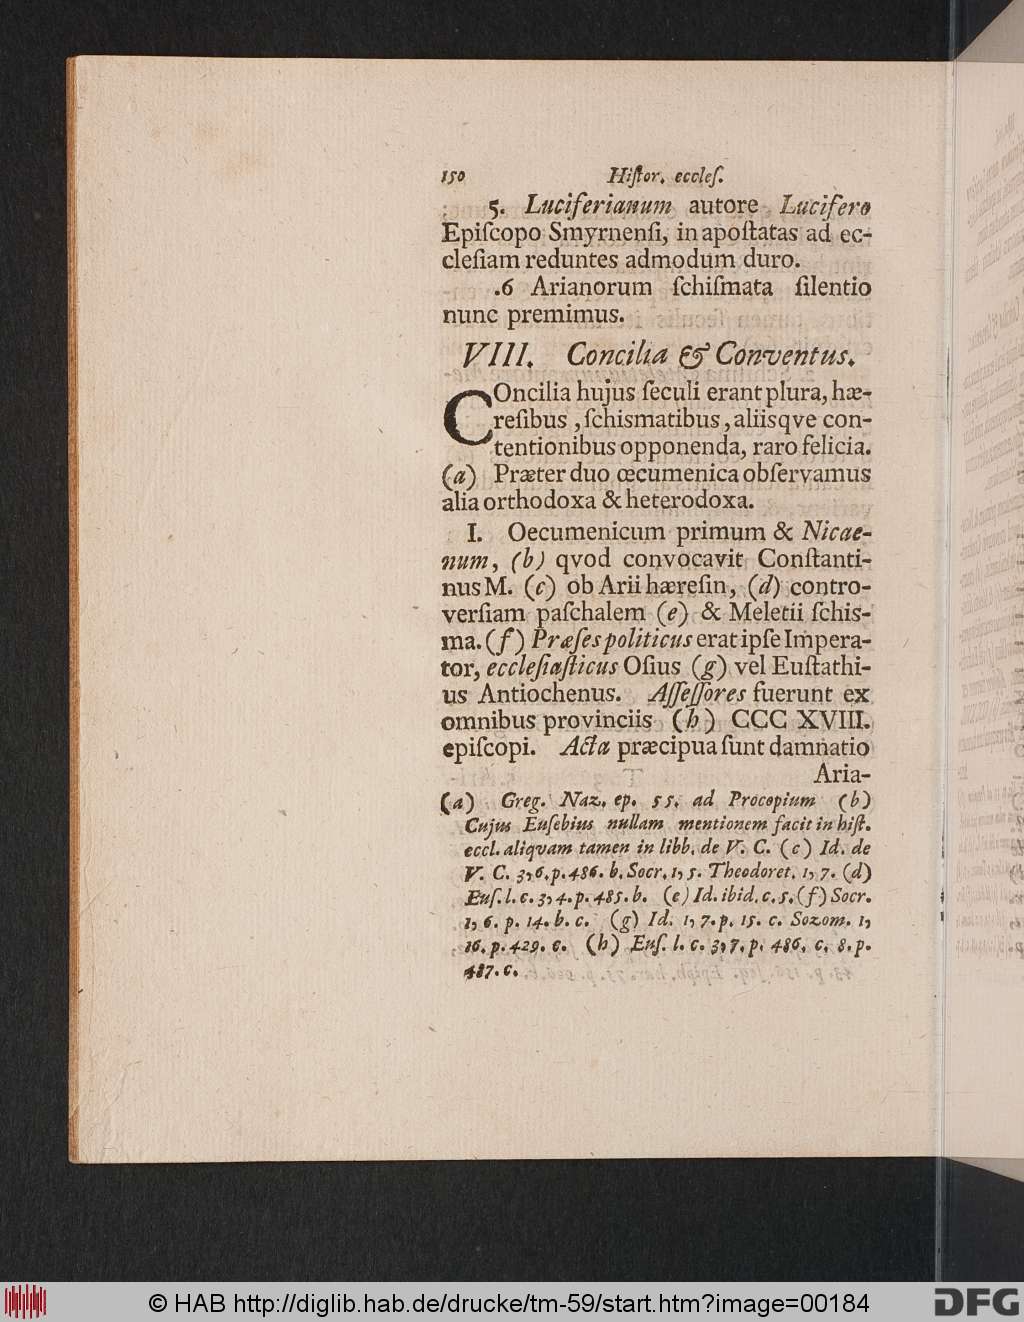 150 Hiſtor. eccleſ.
5. Luciferianum autore Lucifero
Epiſcopo Smyrnenſi, in apoſtatas ad ec-
cleſiam reduntes admodum duro.
.6 Arianorum ſchiſmata ſilentio
nunc premimus.
VIII. Concilia & Conventus.
COncilia hujus ſeculi erant plura, hæ-
reſibus, ſchismatibus, aliisqve con-
tentionibus opponenda, raro felicia.
(a) Præter duo œcumenica obſervamus
alia orthodoxa & heterodoxa.
I. Oecumenicum primum & Nicae-
num, (b) qvod convocavit Conſtanti-
nus M. (c) ob Arii hæreſin, (d) contro-
verſiam paſchalem (e) & Meletii ſchis-
ma. (f) Præſes politicus erat ipſe Impera-
tor, eccleſiaſticus Oſius (g) vel Euſtathi-
us Antiochenus. Aſſeſſores fuerunt ex
omnibus provinciis (h) CCC XVIII.
epiſcopi. Acta præcipua ſunt damnatio
Aria-
(a) Greg. Naz. ep. 55. ad Procopium (b)
Cujus Euſebius nullam mentionem facit in hiſt.
eccl. aliqvam tamen in libb. de V. C. (c) Id. de
V. C. 3, 6. p. 486. b. Socr. 1, 5. Theodoret. 1, 7. (d)
Euſ. l. c. 3, 4. p. 485. b. (e) Id. ibid. c. 5. (f) Socr.
1, 6. p. 14. b. c. (g) Id. 1, 7. p. 15. c. Sozom. 1,
16. p. 429. c. (h) Euſ. l. c. 3, 7. p. 486. c. 8. p.
487. c.
© HAB http://diglib.hab.de/drucke/tm-59/start.htm?image=00184
DFG